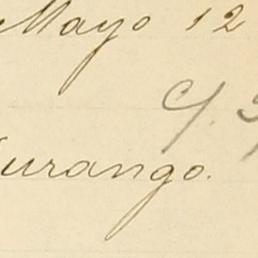 Mayo 12
urango.